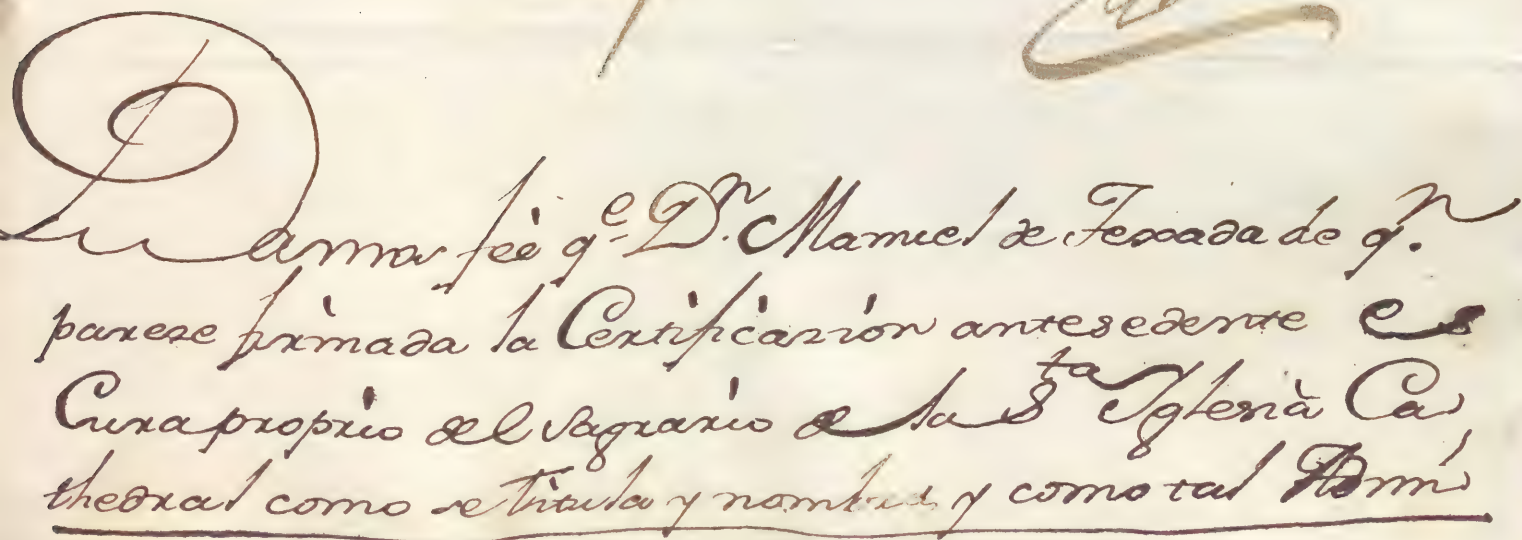 Damos feè q.e D.n Manuel de Texada de q.n
pareze firmada la Certificazion antesedente es
Cura proprio del Sagrario de la S.ta Iglesià Ca
thedral como se titula y nombra y como tal Admi